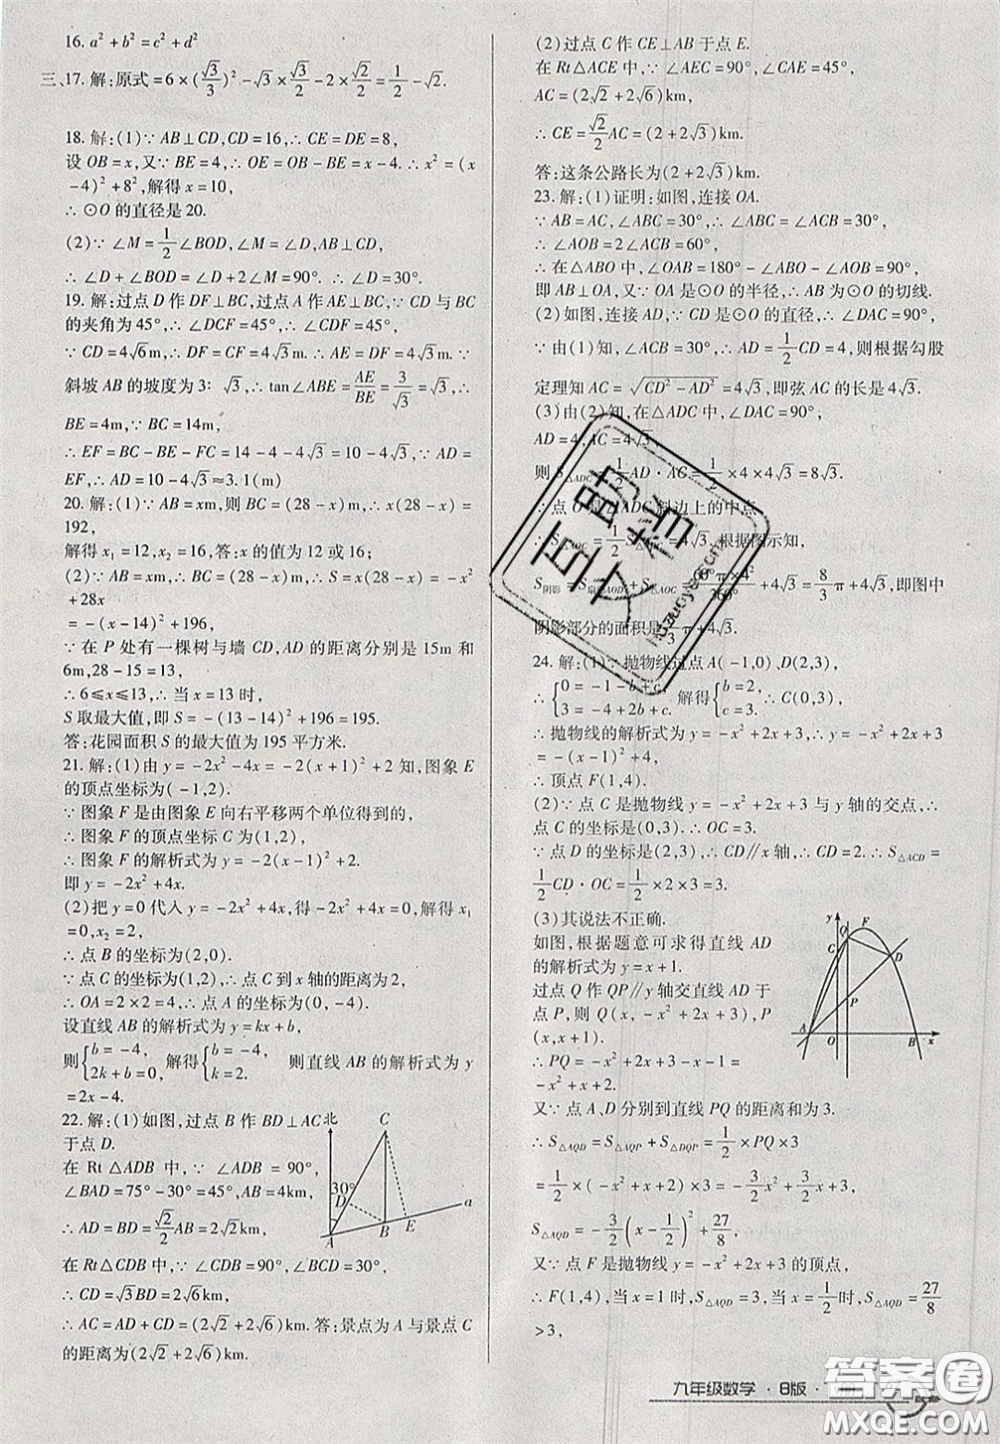 16. a² + b² = c² + d²
三、17. 解:原式 = 6×(√3/3)² − √3×√3/2 − 2×√2/2 = 1/2 − √2.
18. 解:(1)∵ AB⊥CD,CD = 16,∴ CE = DE = 8,
设 OB = x,又∵ BE = 4,∴ OE = OB − BE = x − 4. ∴ x² = (x
−4)² + 8²,解得 x = 10,
∴ ⊙O 的直径是 20.
(2)∵ ∠M = 1/2∠BOD,∠M = ∠D,AB⊥CD,
∴ ∠D + ∠BOD = ∠D + 2∠M = 90°. ∴ ∠D = 30°.
19. 解:过点 D 作 DF⊥BC,过点 A 作 AE⊥BC,∵ CD 与 BC
的夹角为 45°,∴ ∠DCF = 45°,∴ ∠CDF = 45°,
∵ CD = 4√6m,∴ DF = CF = 4√6/√2 = 4√3m,∵
斜坡 AB 的坡度为 3∶√3,∴ tan∠ABE = AE/BE = 3/√3 = √3,∴
BE = 4m,∵ BC = 14m,
∴ EF = BC − BE − FC = 14 − 4 − 4√3 = 10 − 4√3,∵ AD =
EF,∴ AD = 10 − 4√3 ≈ 3.1(m)
20. 解:(1)∵ AB = xm,则 BC = (28 − x)m,∴ x(28 − x) =
192,
解得 x₁ = 12,x₂ = 16,答:x 的值为 12 或 16;
(2)∵ AB = xm,∴ BC = (28 − x)m,∴ S = x(28 − x) = −x²
+28x
= −(x − 14)² + 196,
∵ 在 P 处有一棵树与墙 CD,AD 的距离分别是 15m 和
6m,28 − 15 = 13,
∴ 6≤x≤13,∴ 当 x = 13 时,
S 取最大值,即 S = −(13 − 14)² + 196 = 195.
答:花园面积 S 的最大值为 195 平方米.
21. 解:(1)由 y = −2x² − 4x = −2(x + 1)² + 2 知,图象 E
的顶点坐标为(−1,2).
∵ 图象 F 是由图象 E 向右平移两个单位得到的.
∴ 图象 F 的顶点坐标 C 为(1,2),
∴ 图象 F 的解析式为 y = −2(x − 1)² + 2.
即 y = −2x² + 4x.
(2)把 y = 0 代入 y = −2x² + 4x,得 −2x² + 4x = 0,解得 x₁
= 0,x₂ = 2,
∴ 点 B 的坐标为(2,0).
∵ 点 C 的坐标为(1,2),∴ 点 C 到 x 轴的距离为 2,
∴ OA = 2×2 = 4,∴ 点 A 的坐标为(0,−4).
设直线 AB 的解析式为 y = kx + b,
则{b = −4, 2k + b = 0, 解得{b = −4, k = 2. 则直线 AB 的解析式为 y
= 2x − 4.
22. 解:(1)如图,过点 B 作 BD⊥AC
于点 D.
在 Rt△ADB 中,∵ ∠ADB = 90°,
∠BAD = 75° − 30° = 45°,AB = 4km,
∴ AD = BD = √2/2 AB = 2√2km,
北 C 30° D a B E A
在 Rt△CDB 中,∵ ∠CDB = 90°,∠BCD = 30°,
∴ CD = √3BD = 2√6km,
∴ AC = AD + CD = (2√2 + 2√6)km. 答:景点为 A 与景点 C
的距离为(2√2 + 2√6)km.
(2)过点 C 作 CE⊥AB 于点 E.
在 Rt△ACE 中,∵ ∠AEC = 90°,∠CAE = 45°,
AC = (2√2 + 2√6)km,
∴ CE = √2/2 AC = (2 + 2√3)km.
答:这条公路长为(2 + 2√3)km.
23. 解:(1)证明:如图,连接 OA.
∵ AB = AC,∠ABC = 30°,∴ ∠ABC = ∠ACB = 30°,
∴ ∠AOB = 2∠ACB = 60°,
∴ 在△ABO 中,∠OAB = 180° − ∠ABO − ∠AOB = 90°,
即 AB⊥OA,又∵ OA 是⊙O 的半径,∴ AB 为⊙O 的切线.
(2)如图,连接 AD,∵ CD 是⊙O 的直径,∴ ∠DAC = 90°,
∵ 由(1)知,∠ACB = 30°,∴ AD = 1/2 CD = 4,则根据勾股
定理知 AC = √(CD² − AD²) = 4√3,即弦 AC 的长是 4√3.
(3)由(2)知,在△ADC 中,∠DAC = 90°,
AD = 4,AC = 4√3,
则 S△ADC = 1/2 AD·AC = 1/2×4×4√3 = 8√3.
∴ 点 O 是△ADC 斜边上的中点,
∴ S△AOC = 1/2 S△ADC = 4√3,根据图示知,
S阴影 = S扇形AOD + S△AOC = 60π×4²/360° + 4√3 = 8/3π + 4√3,即图中
阴影部分的面积是8/3π + 4√3.
24. 解:(1)∵ 抛物线过点 A(−1,0),D(2,3),
∴ {0 = −1 − b + c, 3 = −4 + 2b + c. 解得{b = 2, c = 3. ∴ C(0,3),
∴ 抛物线的解析式为 y = −x² + 2x + 3,∴ y = −x² + 2x + 3
= −(x − 1)² + 4,
∴ 顶点 F(1,4).
(2)∵ 点 C 是抛物线 y = −x² + 2x + 3 与 y 轴的交点,∴
点 C 的坐标是(0,3). ∴ OC = 3.
∵ 点 D 的坐标是(2,3),∴ CD∥x 轴,∴ CD = 2. ∴ S△ACD =
1/2 CD·OC = 1/2×2×3 = 3.
(3)其说法不正确.
如图,根据题意可求得直线 AD
的解析式为 y = x + 1.
过点 Q 作 QP∥y 轴交直线 AD 于
点 P,则 Q(x,−x² + 2x + 3),P
(x,x + 1).
∴ PQ = −x² + 2x + 3 − x − 1 =
−x² + x + 2.
y F Q C D P A O B x
又∵ 点 A,D 分别到直线 PQ 的距离和为 3.
∴ S△AQD = S△AQP + S△DQP = 1/2×PQ×3
= 1/2×(−x² + x + 2)×3 = −3/2x² + 3/2x + 3,
S△AQD = −3/2(x − 1/2)² + 27/8,
又∵ 点 F 是抛物线 y = −x² + 2x + 3 的顶点,
∴ F(1,4),当 x = 1 时,S△AQD = 3,当 x = 1/2时,S△AQD = 27/8
>3,
九年级数学·B版·
互助文档
huzuoyesgch
答案圈
MXQE.COM